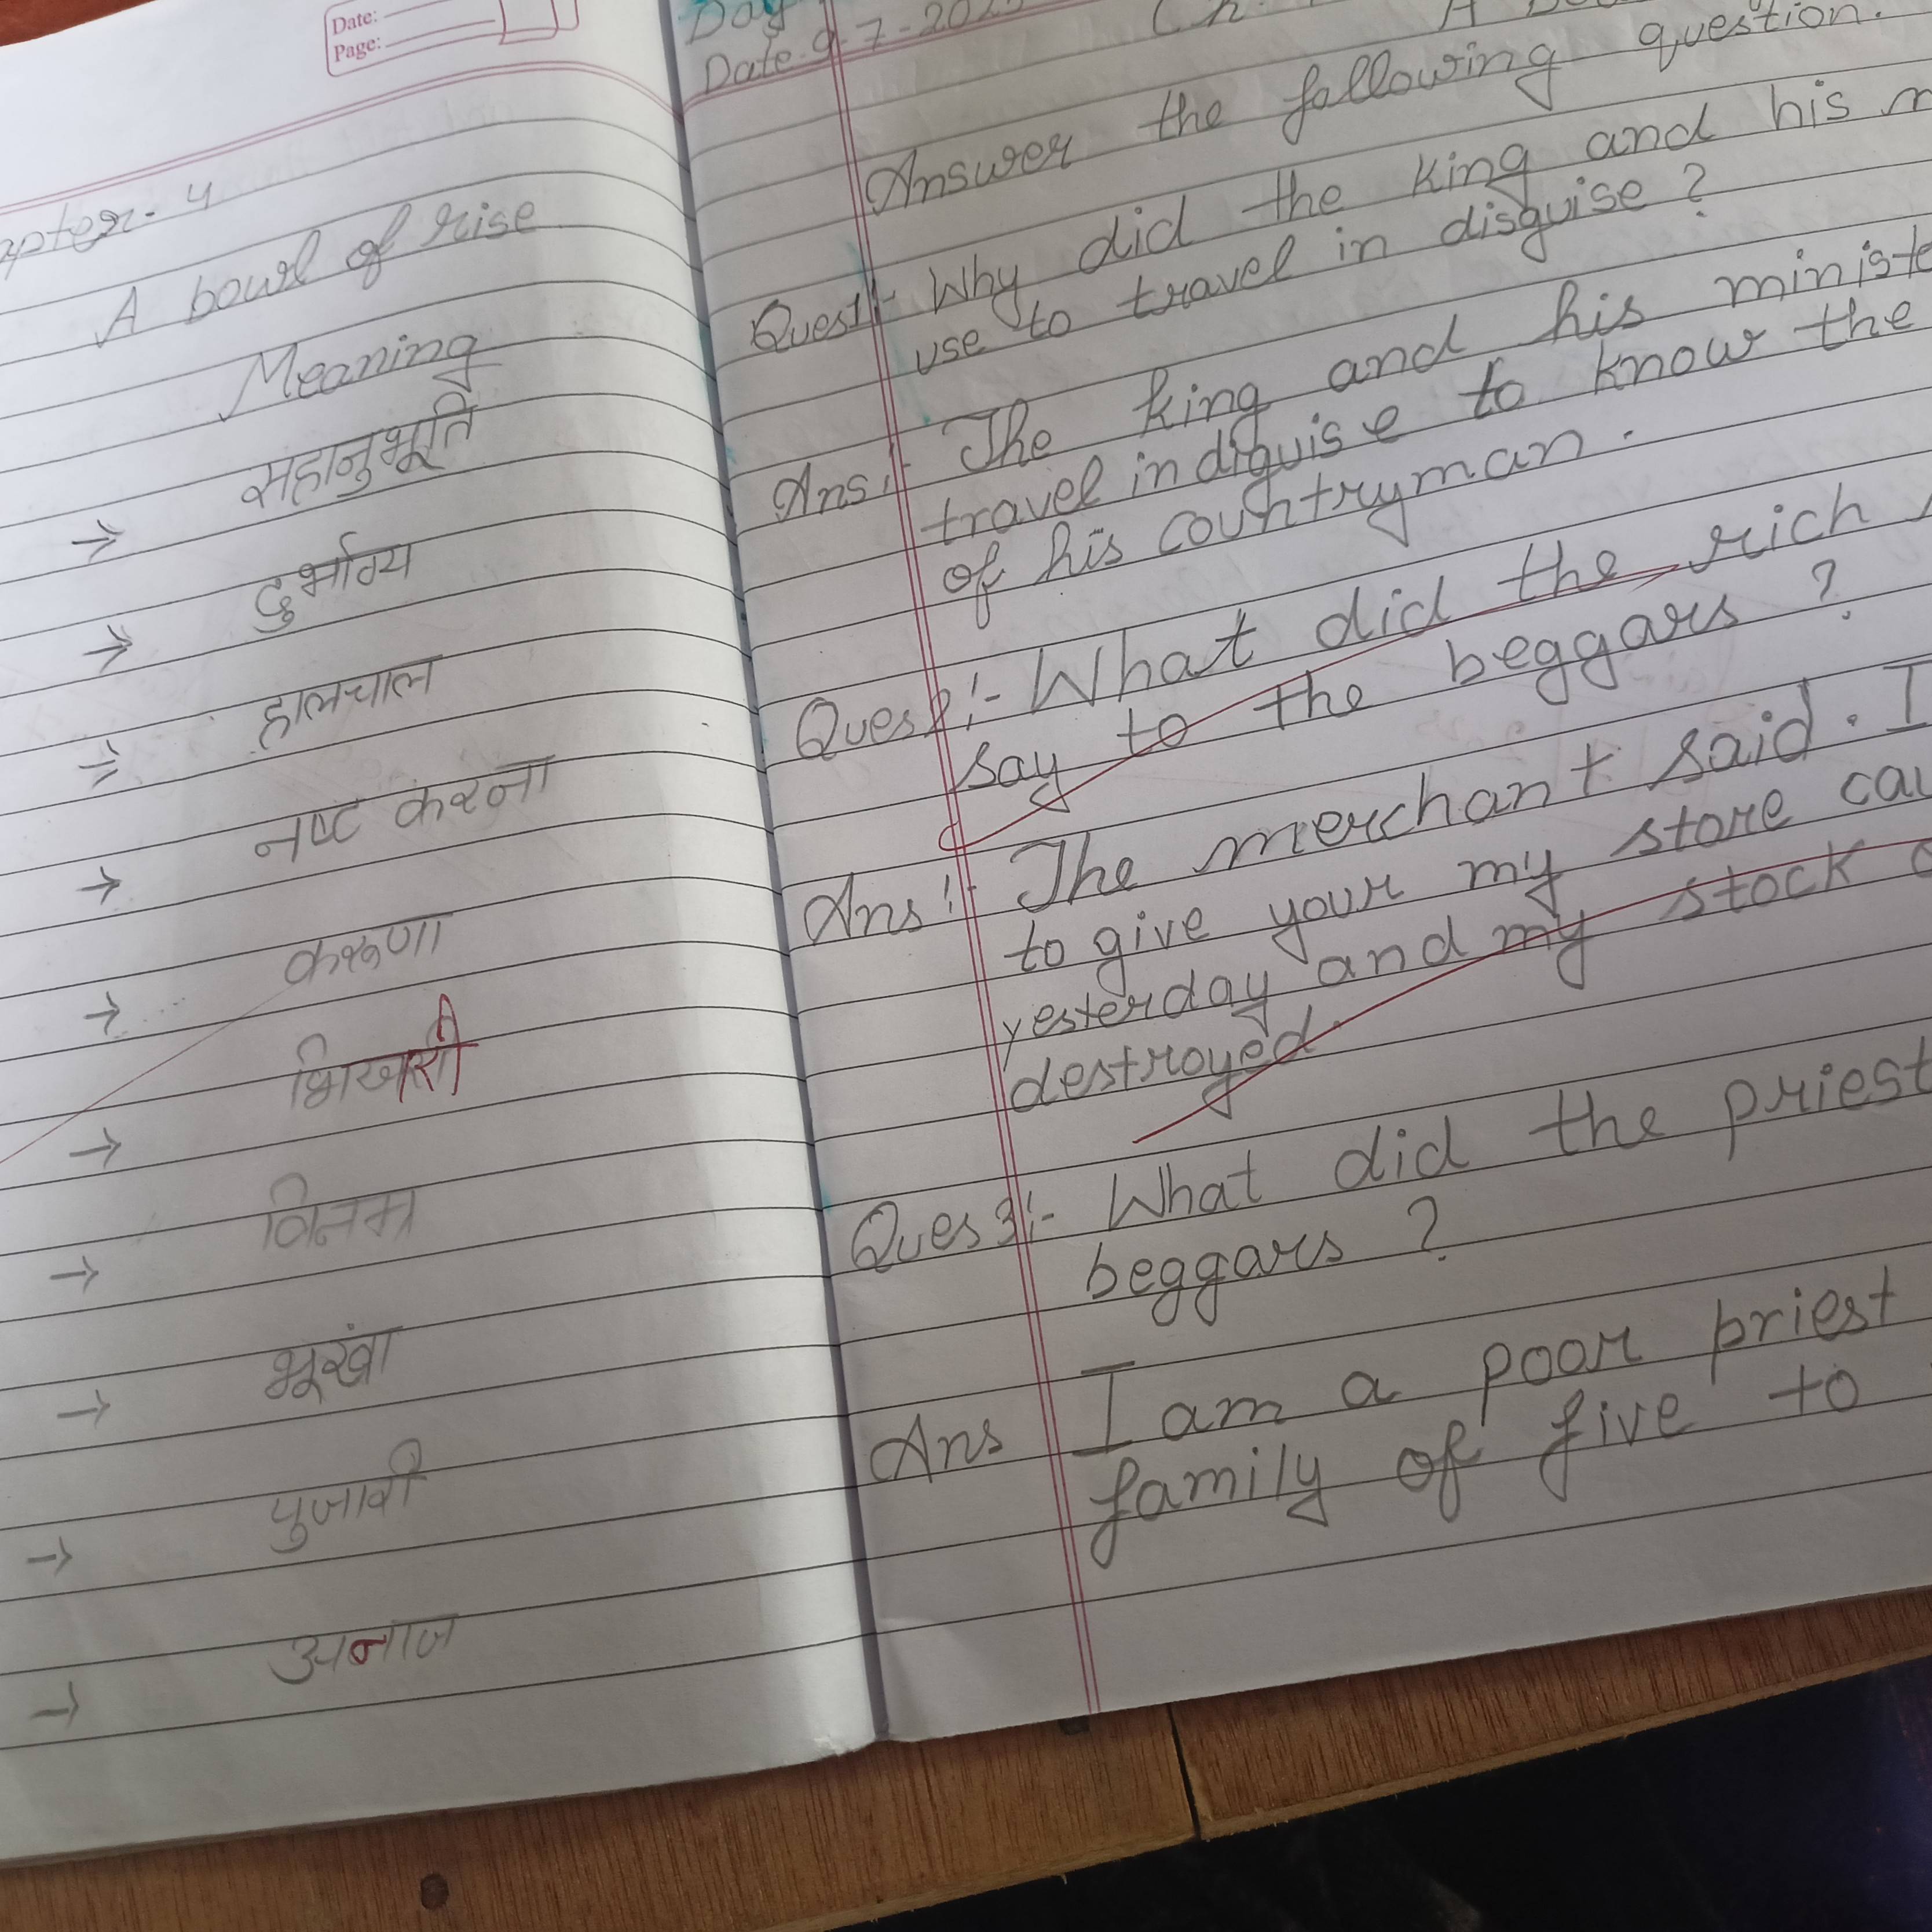 Date:
Page:
Chapter- 4
A bowl of rise
Meaning
→ सहानुभूति
→ दुर्भाग्य
→ हालचाल
→ नष्ट करना
→ करूणा
→ भिखारी
→ विनम्र
→ भूखां
→ पुजारी
→ अनाज
Day
Date- 9-7-202
Ch. A
Answer the following question.
Ques1:- Why did the king and his
use to travel in disguise ?
Ans:- The king and his
travel in diguise to know the
of his countryman.
Ques2:- What did the rich
say to the beggars ?
Ans:- The merchant said. I
to give your my store
yesterday and my stock
destroyed.
Ques3:- What did the priest
beggars ?
Ans I am a poor priest
family of five to